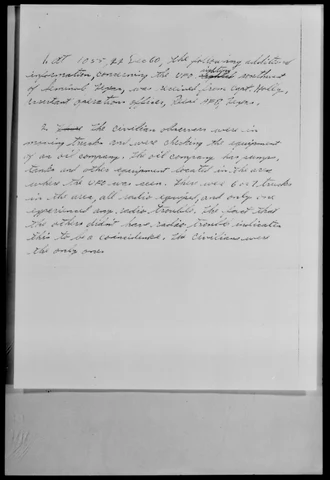 1. At 1055, 22 Dec 60, the following additional
information, concerning the UFO sighting northwest
of Seminole Texas, was received from Capt.
assistant operation officer, AFB, Texas.
2. The civilian observers were in
moving trucks and were checking the equipment
of an oil company. The oil company has pumps,
tanks and other equipment located in the area
where the UFO was seen. There was 6 or 7 trucks
in the area, all radio equiped, and only one
experienced any radio trouble. The fact that
the others didn't have radio trouble indicates
this to be a coincidence. The civilians were
the only ones